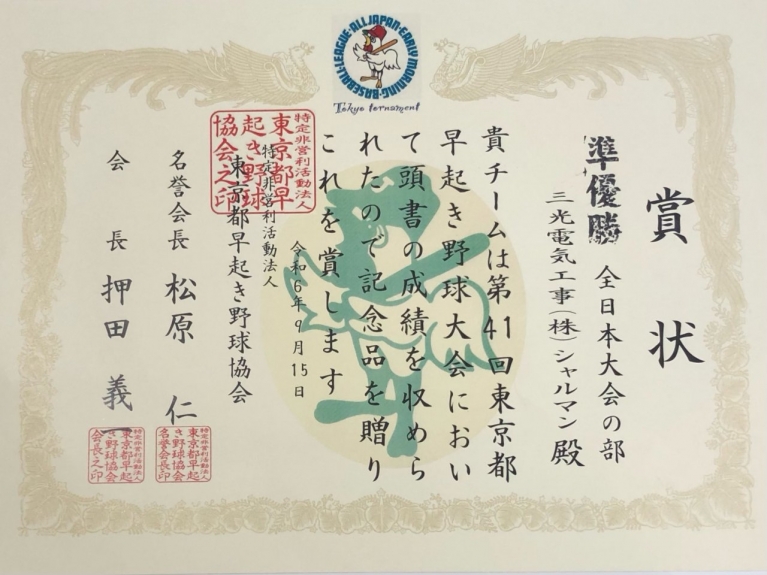 LEAGUE·ALL JAPAN·EARLY MORNING·BASEBALL·
Tokyo tornament
賞状
準優勝 全日本大会の部
三光電気工事(株)シャルマン 殿
貴チームは第41回東京都
早起き野球大会におい
て頭書の成績を収めら
れたので記念品を贈り
これを賞します
令和6年9月15日
特定非営利活動法人
東京都早起き野球協会
特定非営利活動法人
東京都早
起き野球
協会之印
名誉会長 松原 仁
特定非営利活動法人
東京都早起
き野球協会
名誉会長印
会長 押田 義一
特定非営利活動法人
東京都早起
き野球協会
会長之印